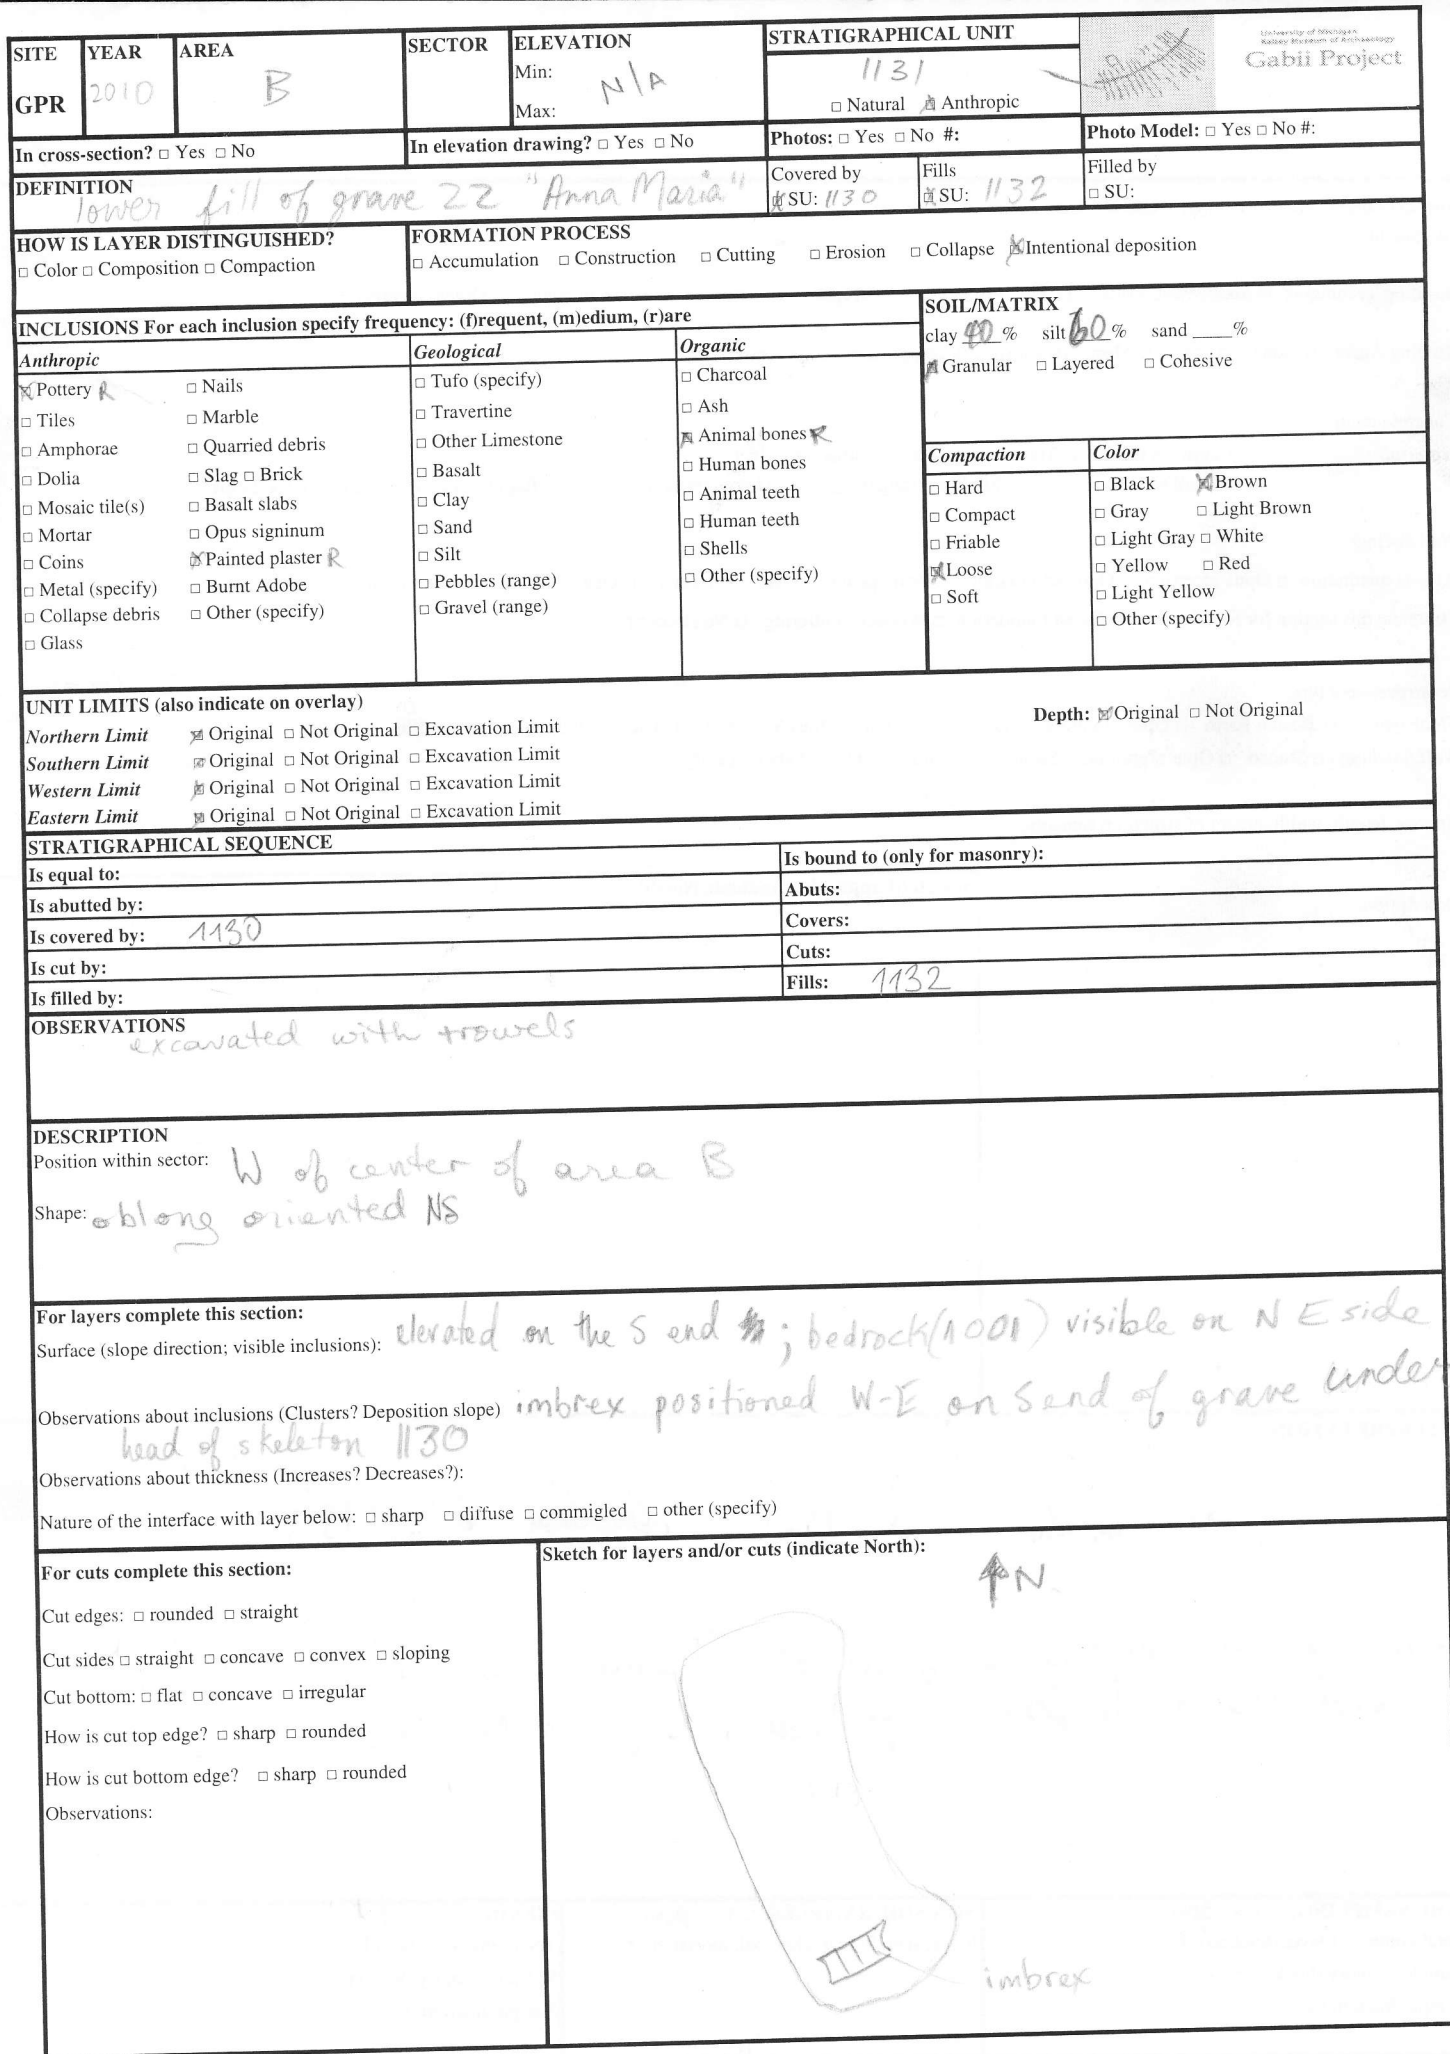 SITE YEAR AREA SECTOR ELEVATION STRATIGRAPHICAL UNIT
University of Michigan
Kelsey Museum of Archaeology
Gabii Project
GPR 2010 B Min: Max: N/A 1131
□ Natural ☒ Anthropic
In cross-section? □ Yes □ No In elevation drawing? □ Yes □ No Photos: □ Yes □ No #: Photo Model: □ Yes □ No #:
DEFINITION lower fill of grave 22 "Anna Maria" Covered by ☒ SU: 1130 Fills ☒ SU: 1132 Filled by □ SU:
HOW IS LAYER DISTINGUISHED?
□ Color □ Composition □ Compaction
FORMATION PROCESS
□ Accumulation □ Construction □ Cutting □ Erosion □ Collapse ☒ Intentional deposition
INCLUSIONS For each inclusion specify frequency: (f)requent, (m)edium, (r)are
Anthropic
☒ Pottery R □ Nails
□ Tiles □ Marble
□ Amphorae □ Quarried debris
□ Dolia □ Slag □ Brick
□ Mosaic tile(s) □ Basalt slabs
□ Mortar □ Opus signinum
□ Coins ☒ Painted plaster R
□ Metal (specify) □ Burnt Adobe
□ Collapse debris □ Other (specify)
□ Glass
Geological
□ Tufo (specify)
□ Travertine
□ Other Limestone
□ Basalt
□ Clay
□ Sand
□ Silt
□ Pebbles (range)
□ Gravel (range)
Organic
□ Charcoal
□ Ash
☒ Animal bones R
□ Human bones
□ Animal teeth
□ Human teeth
□ Shells
□ Other (specify)
SOIL/MATRIX
clay 40 % silt 60 % sand ____%
☒ Granular □ Layered □ Cohesive
Compaction
□ Hard
□ Compact
□ Friable
☒ Loose
□ Soft
Color
□ Black ☒ Brown
□ Gray □ Light Brown
□ Light Gray □ White
□ Yellow □ Red
□ Light Yellow
□ Other (specify)
UNIT LIMITS (also indicate on overlay)
Depth: ☒ Original □ Not Original
Northern Limit ☒ Original □ Not Original □ Excavation Limit
Southern Limit ☒ Original □ Not Original □ Excavation Limit
Western Limit ☒ Original □ Not Original □ Excavation Limit
Eastern Limit ☒ Original □ Not Original □ Excavation Limit
STRATIGRAPHICAL SEQUENCE
Is equal to:
Is abutted by:
Is covered by: 1130
Is cut by:
Is filled by:
Is bound to (only for masonry):
Abuts:
Covers:
Cuts:
Fills: 1132
OBSERVATIONS
excavated with trowels
DESCRIPTION
Position within sector: W of center of area B
Shape: oblong oriented NS
For layers complete this section:
Surface (slope direction; visible inclusions): elevated on the S end ; bedrock (1001) visible on N E side
Observations about inclusions (Clusters? Deposition slope) imbrex positioned W-E on S end of grave under
head of skeleton 1130
Observations about thickness (Increases? Decreases?):
Nature of the interface with layer below: □ sharp □ diffuse □ commigled □ other (specify)
For cuts complete this section:
Cut edges: □ rounded □ straight
Cut sides □ straight □ concave □ convex □ sloping
Cut bottom: □ flat □ concave □ irregular
How is cut top edge? □ sharp □ rounded
How is cut bottom edge? □ sharp □ rounded
Observations:
Sketch for layers and/or cuts (indicate North):
N
imbrex